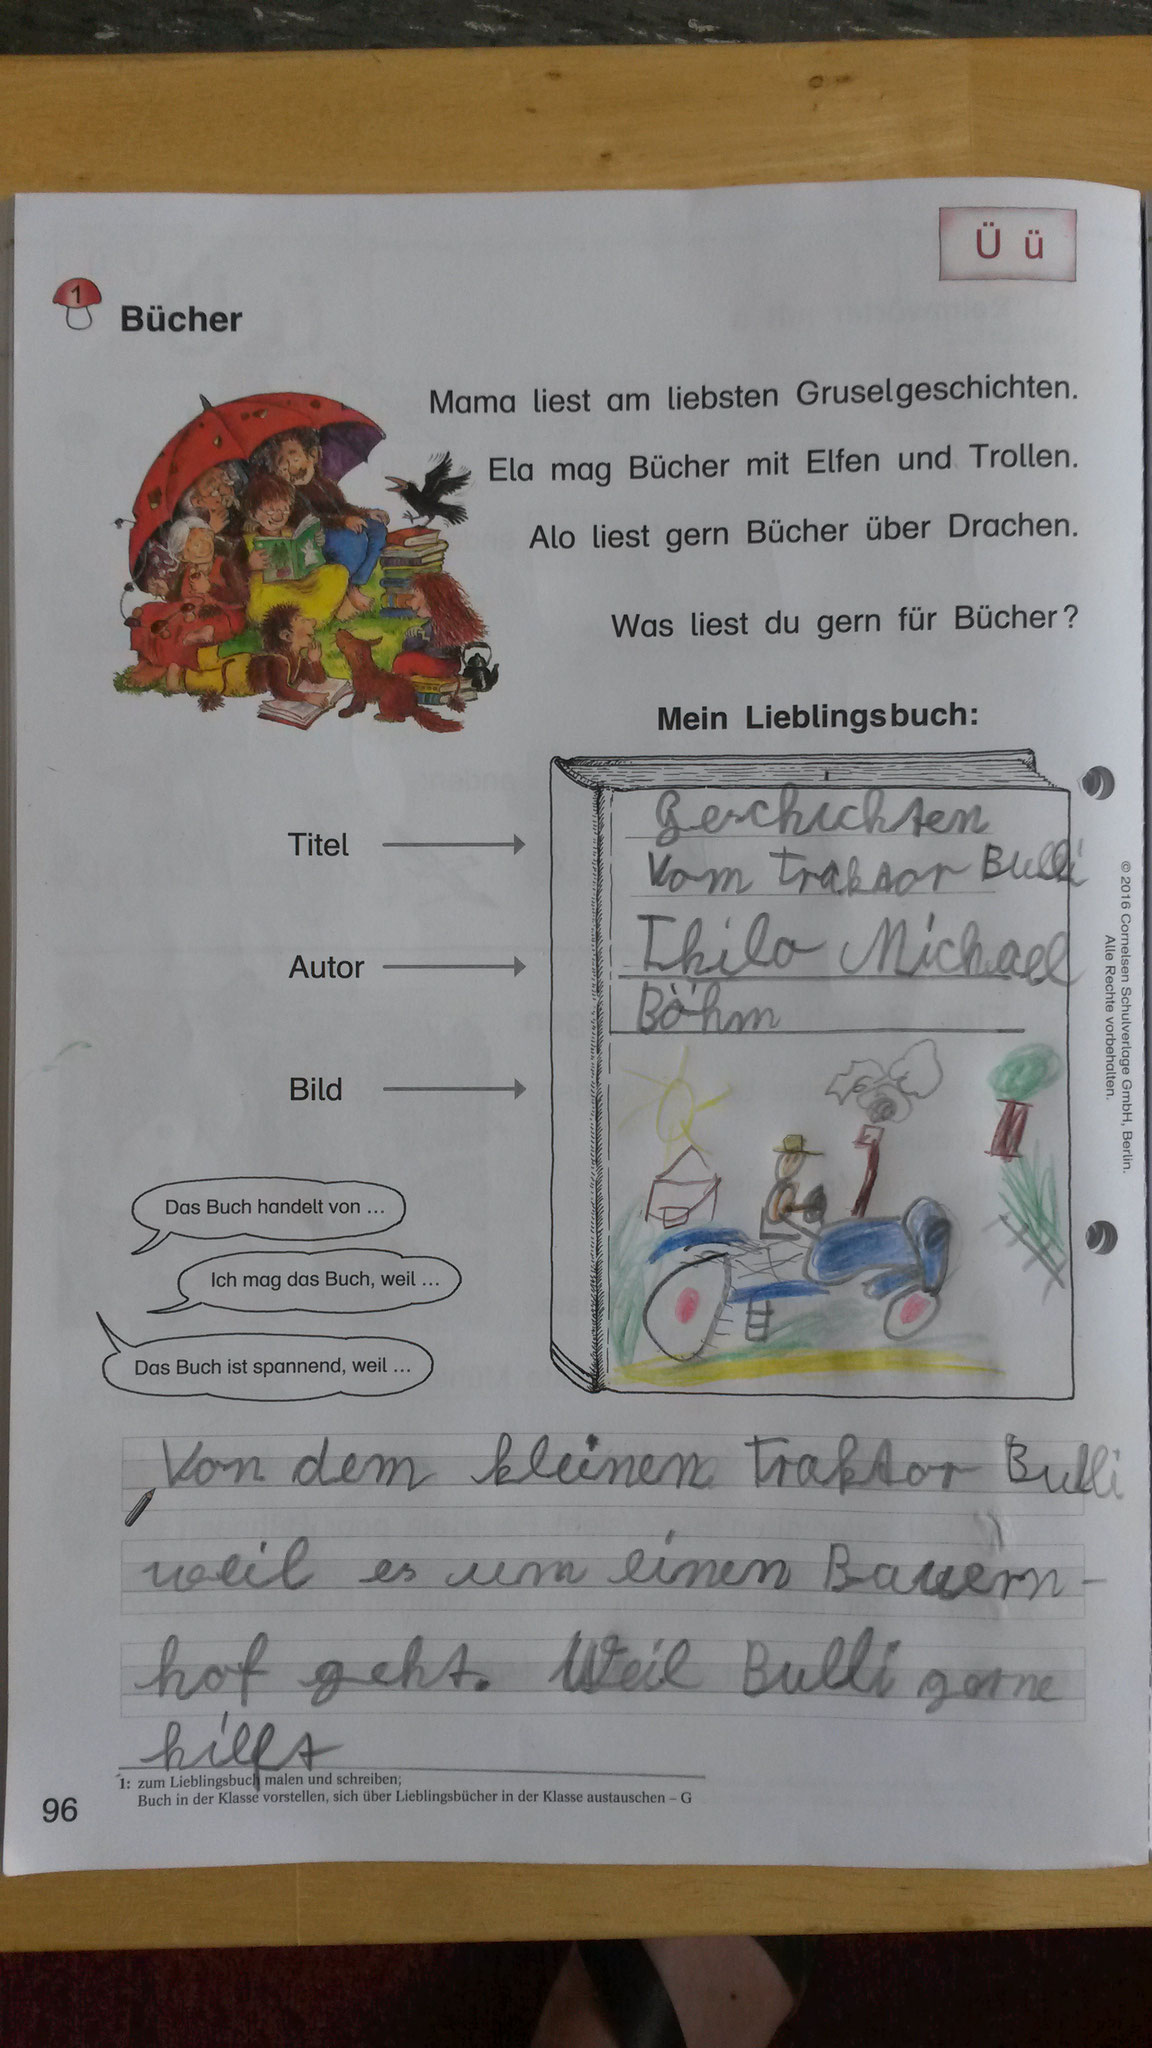 Ü ü
1 Bücher
Mama liest am liebsten Gruselgeschichten.
Ela mag Bücher mit Elfen und Trollen.
Alo liest gern Bücher über Drachen.
Was liest du gern für Bücher?
Mein Lieblingsbuch:
Titel
Geschichten
Vom Traktor Bulli
Autor
Thilo Michael
Böhm
Bild
Das Buch handelt von ...
Ich mag das Buch, weil ...
Das Buch ist spannend, weil ...
Von dem kleinen Traktor Bulli
weil es um einen Bauern-
hof geht. Weil Bulli gerne
hilft
1: zum Lieblingsbuch malen und schreiben;
Buch in der Klasse vorstellen, sich über Lieblingsbücher in der Klasse austauschen – G
96
© 2016 Cornelsen Schulverlage GmbH, Berlin.
Alle Rechte vorbehalten.